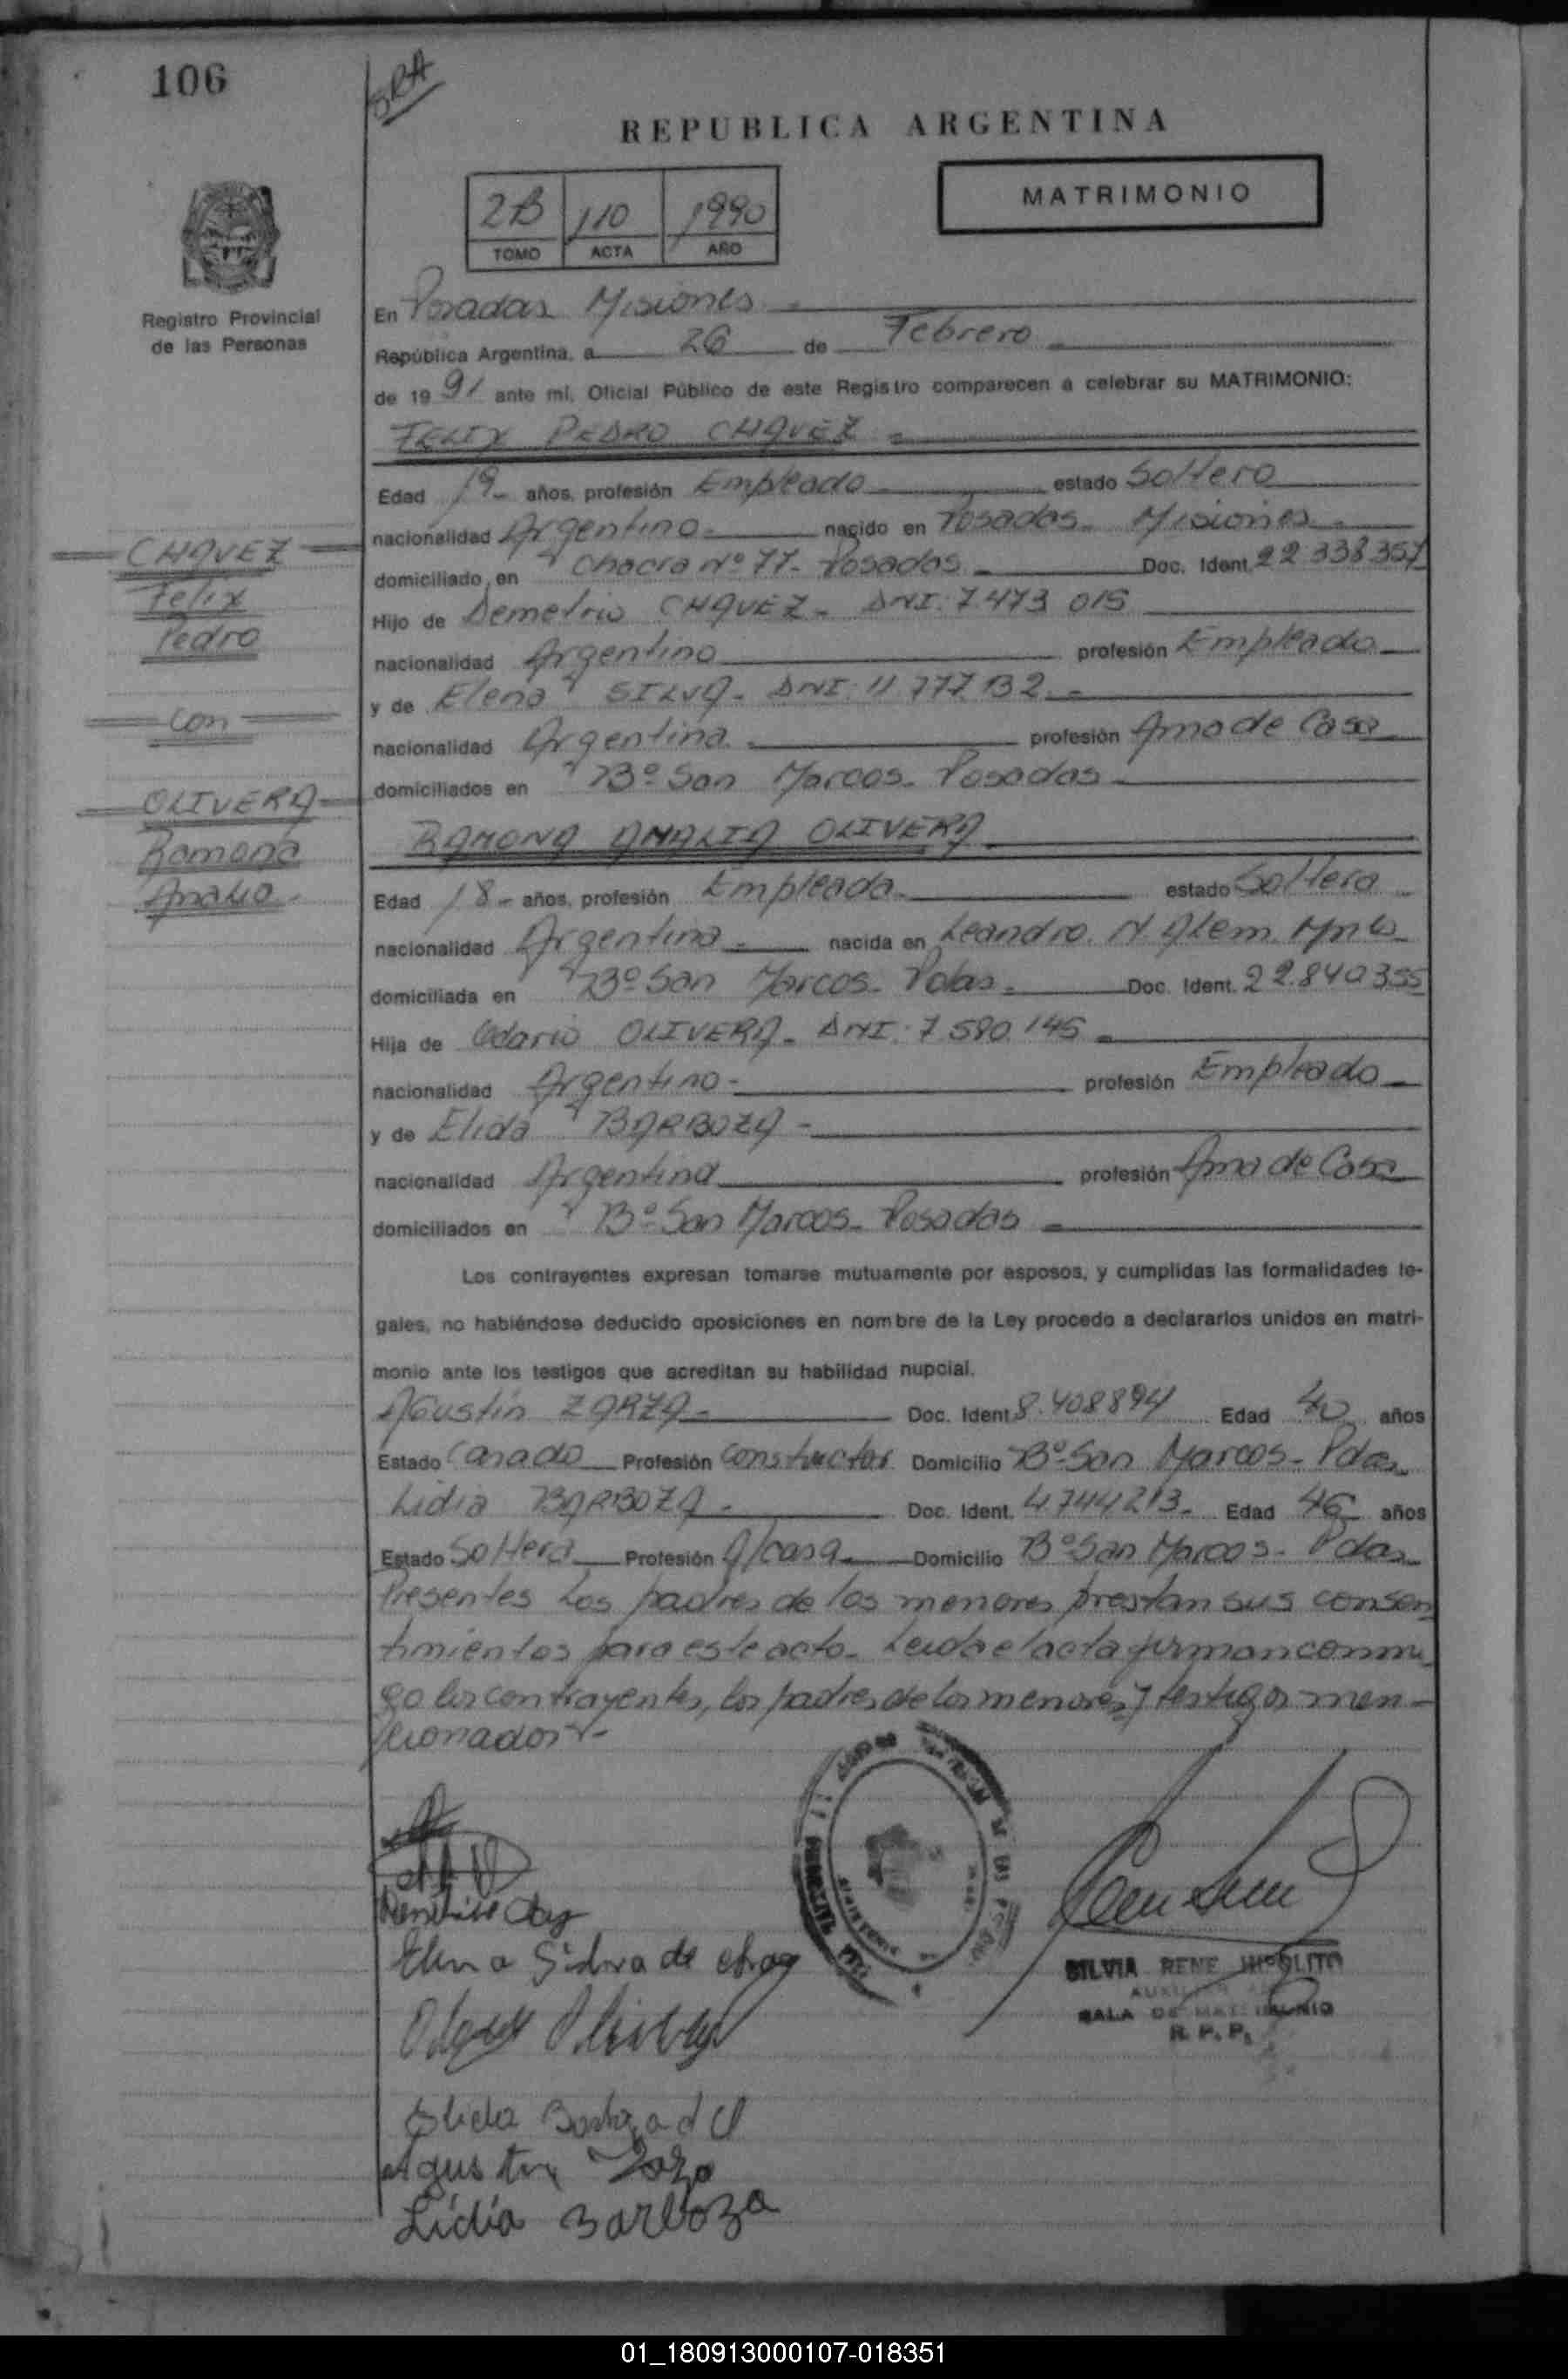 106
SRA
REPUBLICA ARGENTINA
2B 110 1990
TOMO ACTA AÑO
MATRIMONIO
Registro Provincial
de las Personas
En Posadas Misiones
República Argentina, a 26 de Febrero
de 1991 ante mi, Oficial Público de este Registro comparecen a celebrar su MATRIMONIO:
FELIX PEDRO CHAVEZ
Edad 19 años, profesión Empleado estado Soltero
nacionalidad Argentino nacido en Posadas Misiones
domiciliado en Chacra Nº 77 - Posadas Doc. Ident. 22 338 357
Hijo de Demetrio CHAVEZ - DNI: 7 473 015
nacionalidad Argentino profesión Empleado
y de Elena SILVA - DNI: 11 777 132
nacionalidad Argentina profesión Ama de Casa
domiciliados en Bº San Marcos - Posadas
CHAVEZ
Felix
Pedro
con
OLIVERA
Ramona
Amalia
RAMONA AMALIA OLIVERA
Edad 18 - años, profesión Empleada estado Soltera
nacionalidad Argentina nacida en Leandro N. Alem. Mnes
domiciliada en Bº San Marcos - Pdas. Doc. Ident. 22.840 355
Hija de OLIVERA - DNI: 7 580 145
nacionalidad Argentino - profesión Empleado
y de Elida BARBOZA -
nacionalidad Argentina profesión Ama de Casa
domiciliados en Bº San Marcos - Posadas
Los contrayentes expresan tomarse mutuamente por esposos, y cumplidas las formalidades le-
gales, no habiéndose deducido oposiciones en nombre de la Ley procedo a declararlos unidos en matri-
monio ante los testigos que acreditan su habilidad nupcial.
Agustín ZARZA - Doc. Ident. 8.408894 Edad 40 años
Estado Casado Profesión Constructor Domicilio Bº San Marcos - Pdas
Lidia BARBOZA - Doc. Ident. 4.744.213 - Edad 46 años
Estado Soltera Profesión A/casa Domicilio Bº San Marcos - Pdas
Presentes Los padres de los menores prestan sus consen
timientos para este acto - Leida el acta firman conmi
go los contrayentes, los padres de los menores y testigos men-
cionados -
Elena Silva de
Olivera
Elida Barboza d O
Agustin Zarza
Lidia Barboza
SILVIA RENE HIPOLITO
AUXILIAR
SALA DE MATRIMONIO
R. P. P.
01_180913000107-018351